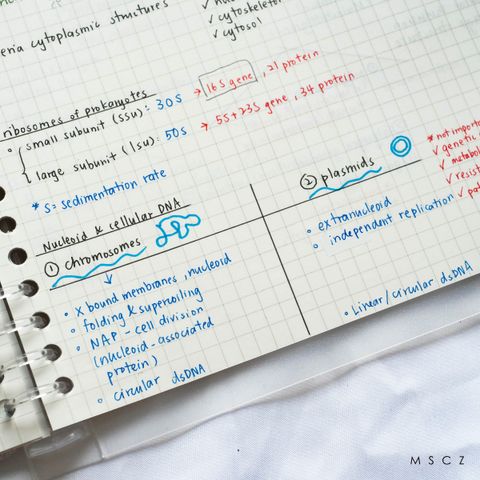 cytoplasmic structures
✓ cytoskeleton
✓ cytosol
ribosomes of prokaryotes
• small subunit (ssu): 30S → 16S gene, 21 protein
large subunit (lsu): 50S → 5S+23S gene, 34 protein
* S = sedimentation rate
Nucleoid & cellular DNA
① chromosomes
• X bound membranes, nucleoid
• folding & supercoiling
• NAP - cell division
(nucleoid-associated
protein)
• circular dsDNA
② plasmids
• extranucleoid
• independent replication
• Linear/circular dsDNA
* not import
✓ genetic
✓ metabol
✓ resist
✓ pat
MSCZ